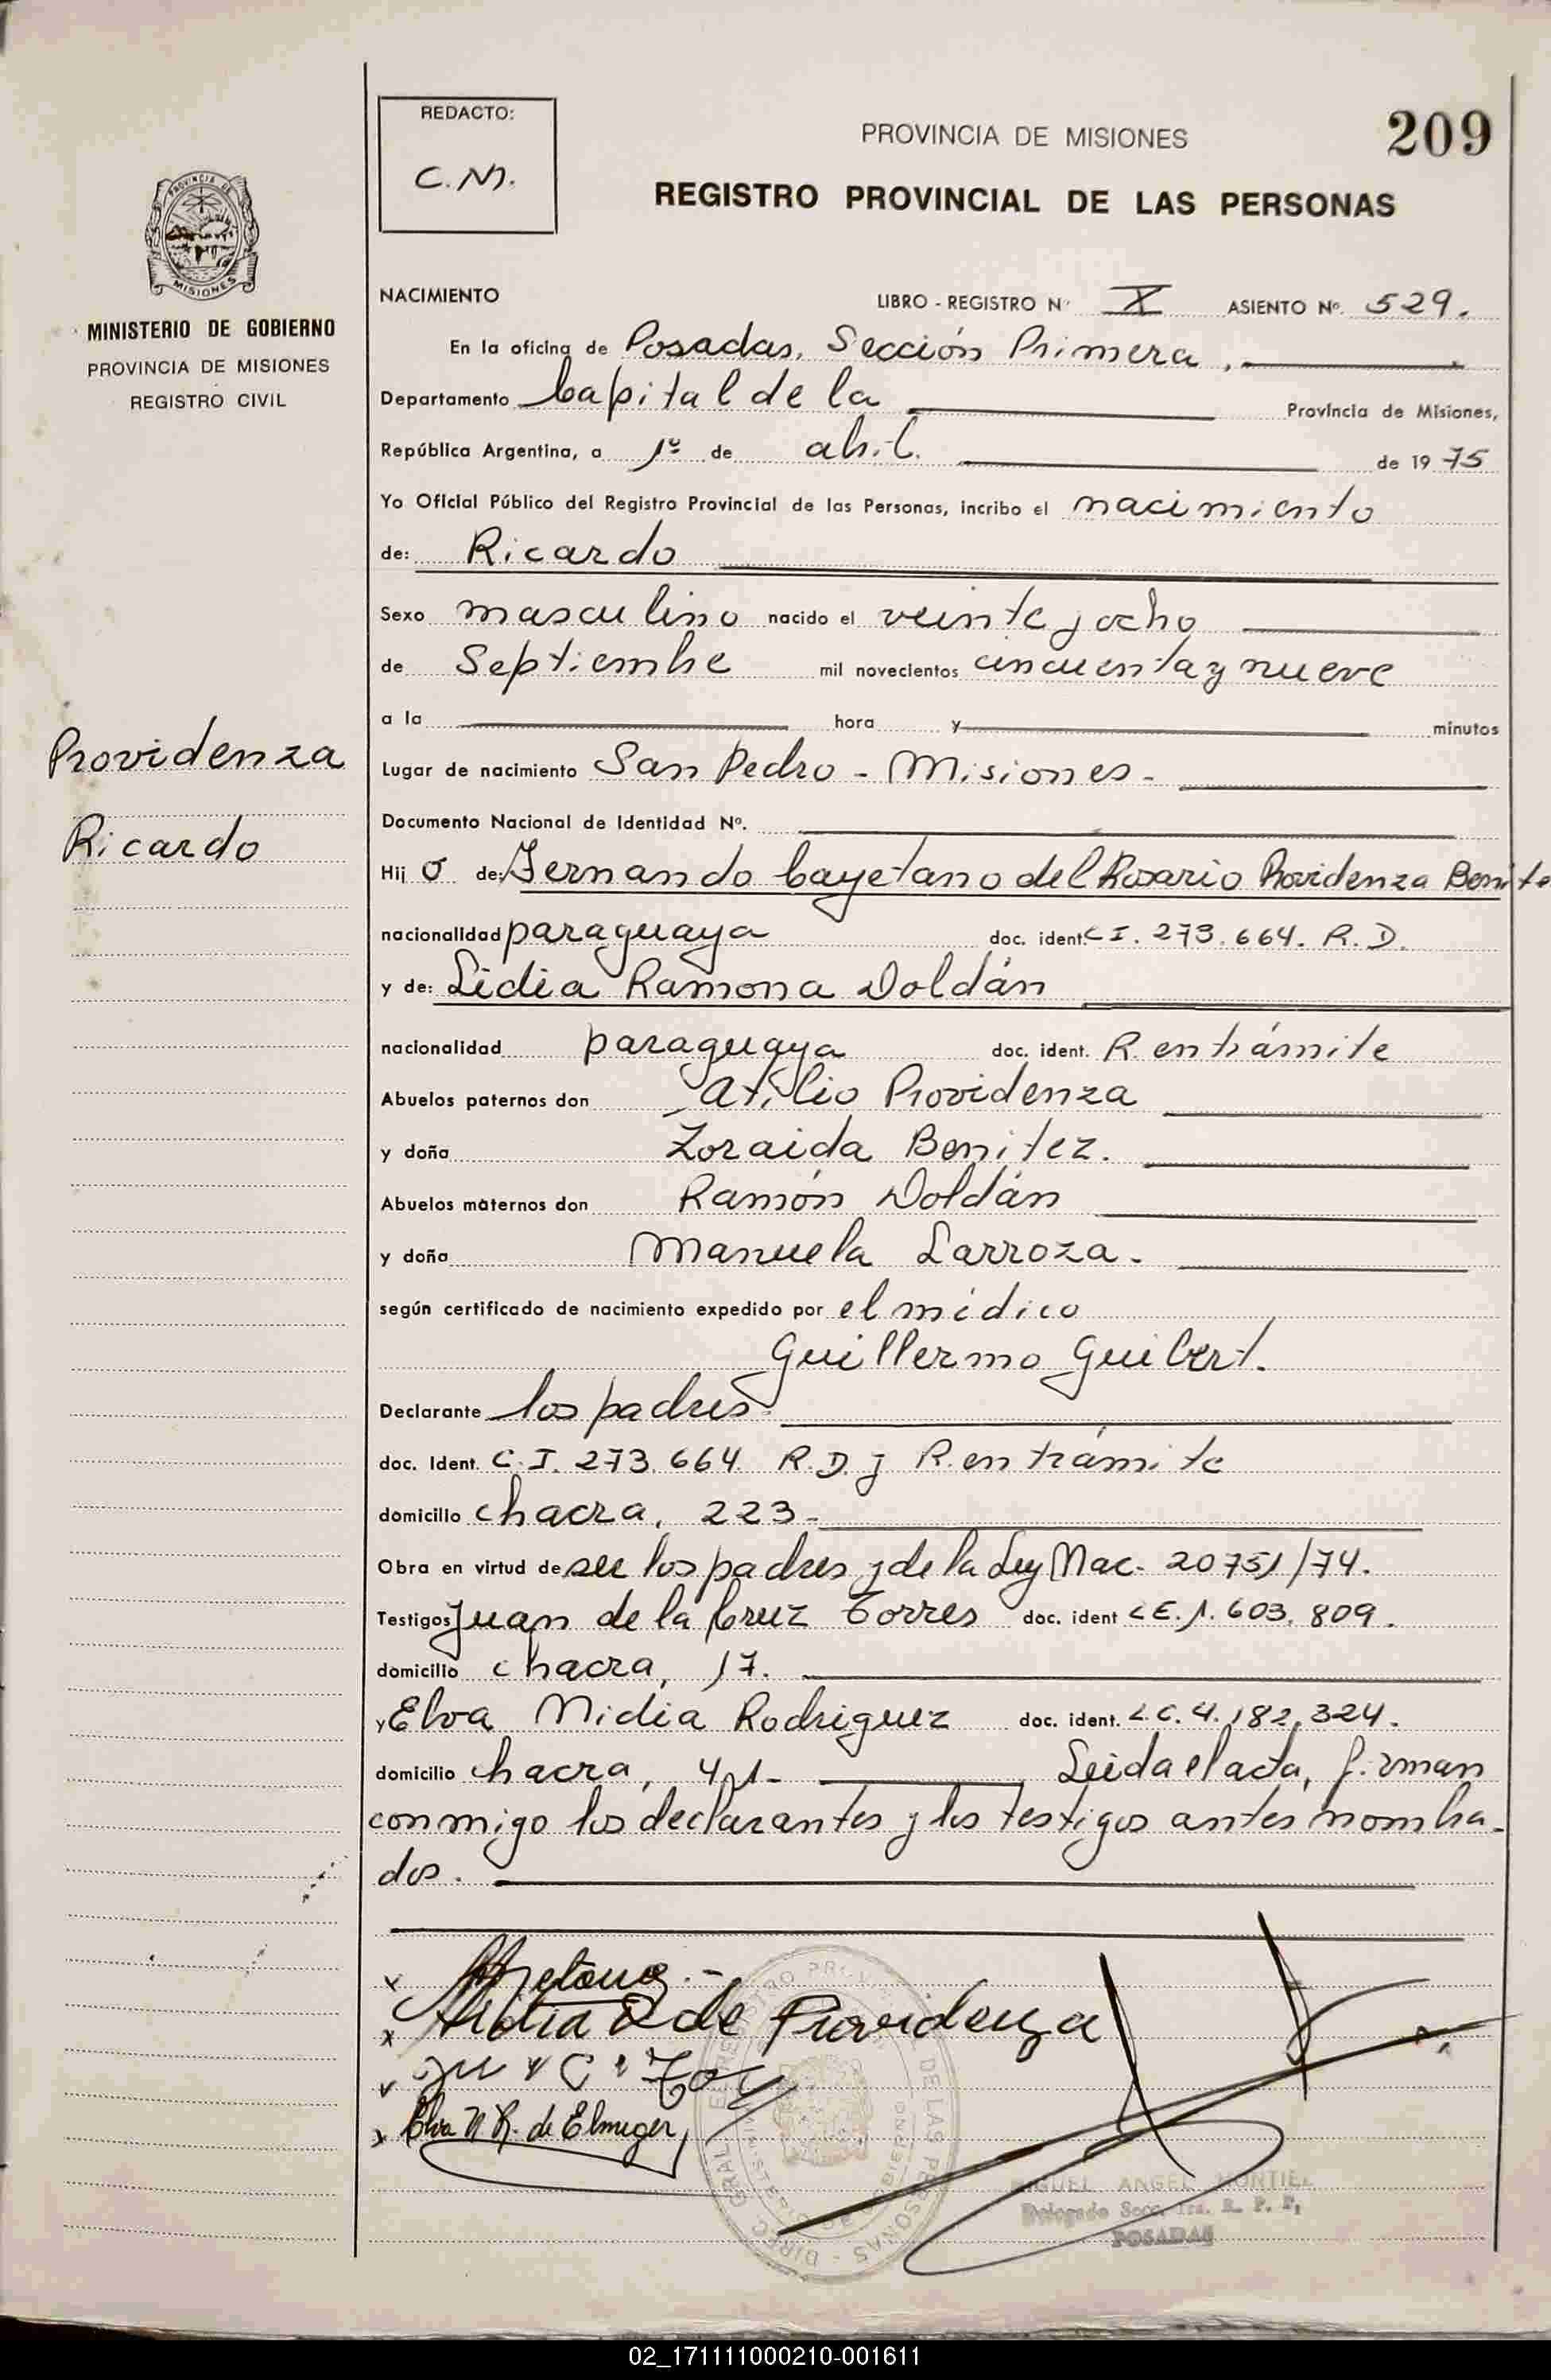 REDACTO:
C.M.
PROVINCIA DE MISIONES
209
REGISTRO PROVINCIAL DE LAS PERSONAS
PROVINCIA DE MISIONES
MINISTERIO DE GOBIERNO
PROVINCIA DE MISIONES
REGISTRO CIVIL
NACIMIENTO
LIBRO - REGISTRO Nº X ASIENTO Nº 529.
En la oficina de Posadas, Sección Primera,
Departamento Capital de la Provincia de Misiones,
República Argentina, a 1º de abril. de 1975
Yo Oficial Público del Registro Provincial de las Personas, incribo el nacimiento
de: Ricardo
Sexo masculino nacido el veinte y ocho
de Septiembre mil novecientos cincuenta y nueve
a la hora y minutos
Providenza
Ricardo
Lugar de nacimiento San Pedro - Misiones -
Documento Nacional de Identidad Nº.
Hij o de: Fernando Cayetano del Rosario Providenza Benite
nacionalidad paraguaya doc. ident. C I. 273.664. R. D.
y de: Lidia Ramona Doldán
nacionalidad paraguaya doc. ident. R. en trámite
Abuelos paternos don Atilio Providenza
y doña Zoraida Benitez.
Abuelos maternos don Ramón Doldán
y doña Manuela Larroza.
según certificado de nacimiento expedido por el médico
Guillermo Guibert.
Declarante los padres
doc. Ident. C. I. 273.664 R. D. y R. en trámite
domicilio chacra, 223-
Obra en virtud de ser los padres y de la Ley Nac. 20751/74.
Testigos Juan de la Cruz Torres doc. ident L E. 1. 603. 809.
domicilio chacra, 17.
y Elva Nidia Rodriguez doc. ident. L C. 4. 182. 324.
domicilio chacra, 41- Leida el acta, firman
conmigo los declarantes y los testigos antes nombra-
dos.
de Providenza
Elva N R. de Elmeger
MIGUEL ANGEL MONTIEL
Delegado Secc. 1ra. R. P. P.
POSADAS
02_171111000210-001611